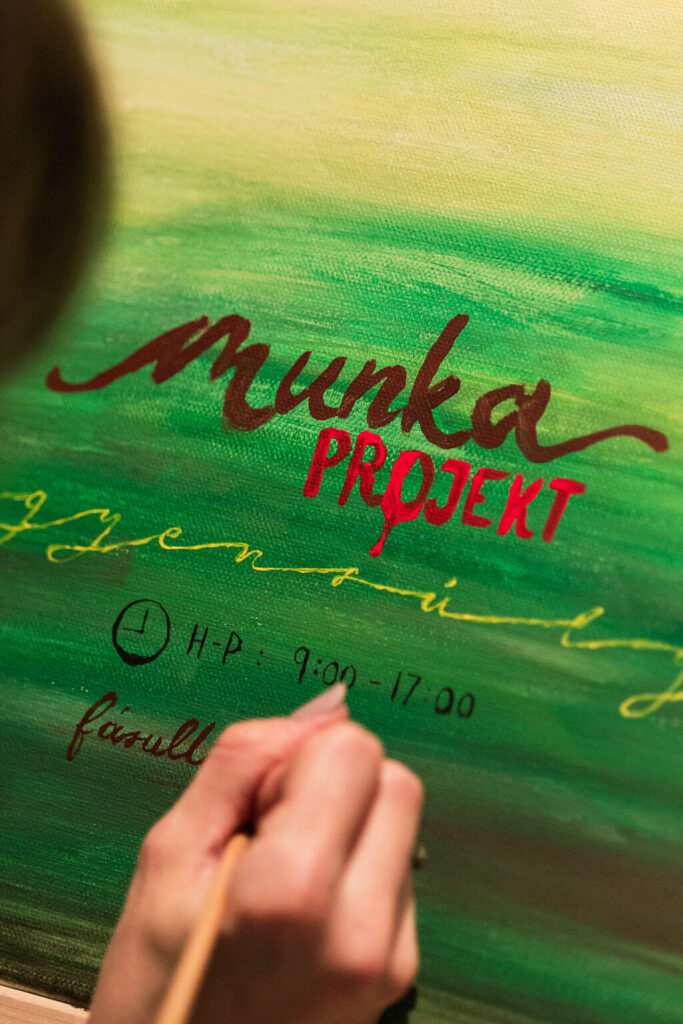 munka
PROJEKT
gyensúly
H-P: 9:00-17:00
fásull